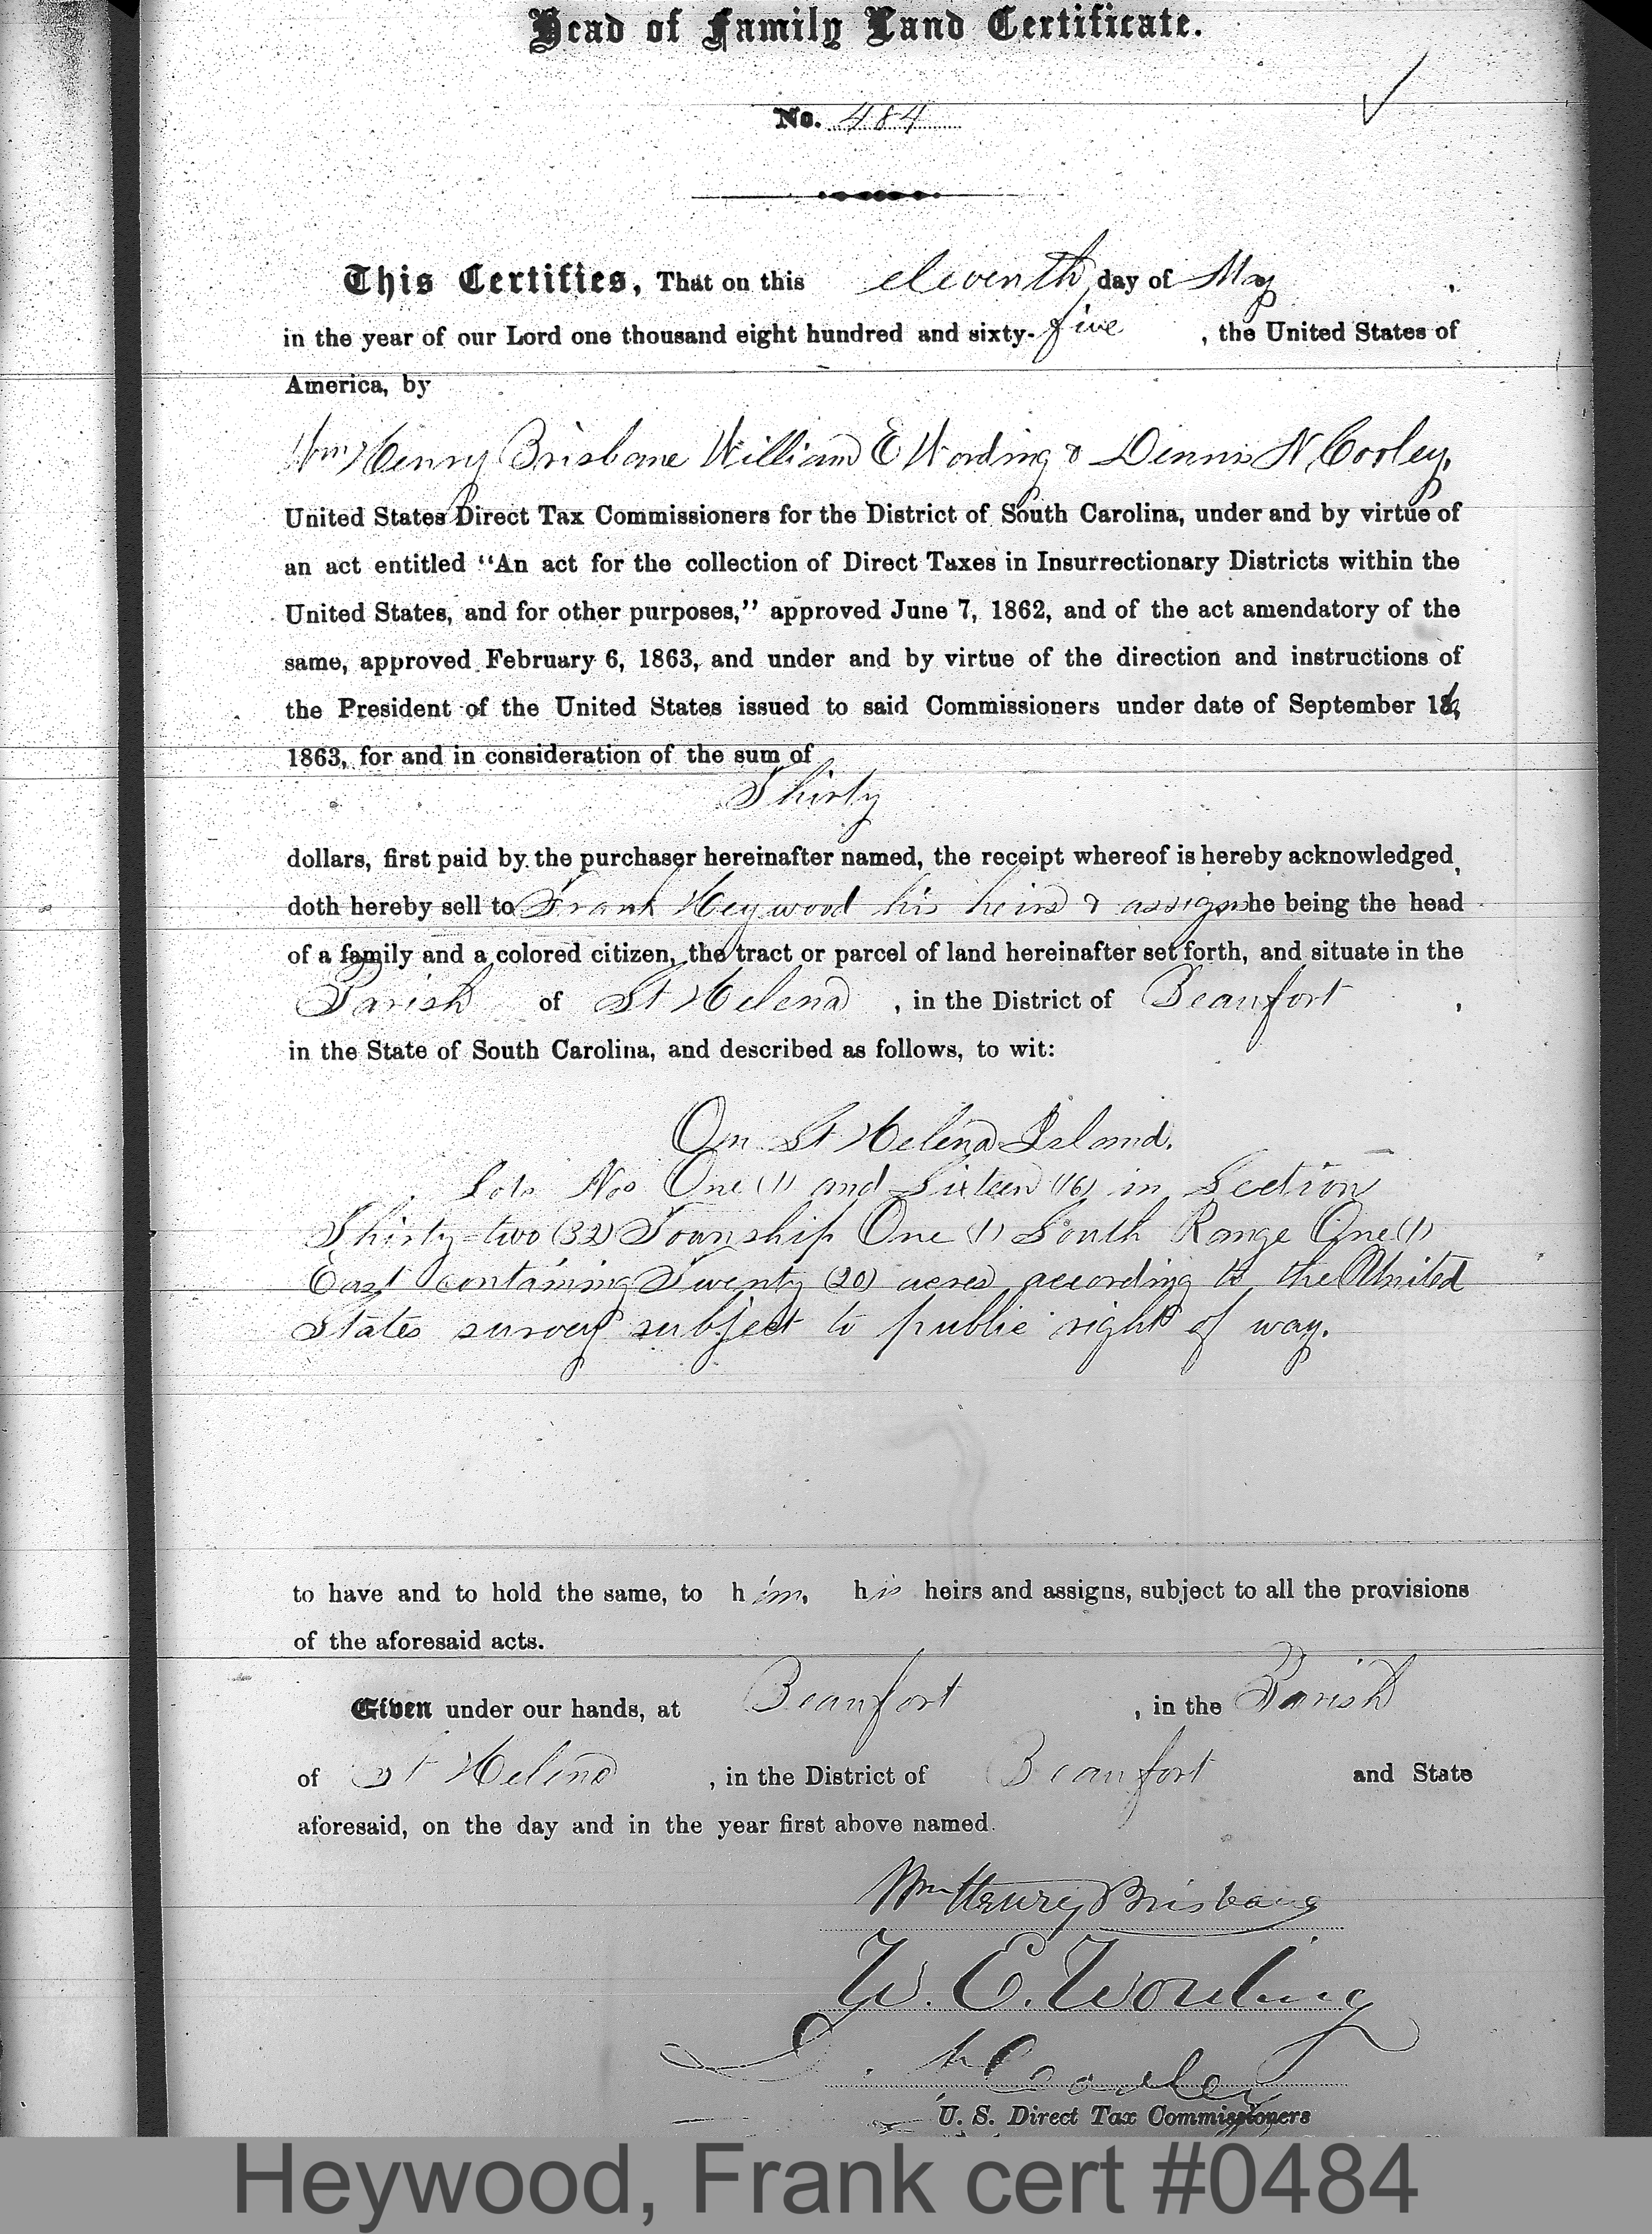 Head of Family Land Certificate.
No. 484
This Certifies, That on this eleventh day of May,
in the year of our Lord one thousand eight hundred and sixty-five, the United States of
America, by
Wm Henry Brisbane William E Wording & Dennis N Cooley,
United States Direct Tax Commissioners for the District of South Carolina, under and by virtue of
an act entitled "An act for the collection of Direct Taxes in Insurrectionary Districts within the
United States, and for other purposes," approved June 7, 1862, and of the act amendatory of the
same, approved February 6, 1863, and under and by virtue of the direction and instructions of
the President of the United States issued to said Commissioners under date of September 16,
1863, for and in consideration of the sum of
Thirty
dollars, first paid by the purchaser hereinafter named, the receipt whereof is hereby acknowledged,
doth hereby sell to Frank Heywood his heirs & assigns he being the head
of a family and a colored citizen, the tract or parcel of land hereinafter set forth, and situate in the
Parish of St Helena, in the District of Beaufort,
in the State of South Carolina, and described as follows, to wit:
On St Helena Island.
Lots Nos One (1) and Sixteen (16) in Section
Thirty-two (32) Township One (1) South Range One (1)
East containing Twenty (20) acres according to the United
States survey subject to public right of way.
to have and to hold the same, to him, his heirs and assigns, subject to all the provisions
of the aforesaid acts.
Given under our hands, at Beaufort, in the Parish
of St Helena, in the District of Beaufort and State
aforesaid, on the day and in the year first above named.
Wm Henry Brisbane
W. E. Wording
D. N. Cooley
U. S. Direct Tax Commissioners
Heywood, Frank cert #0484